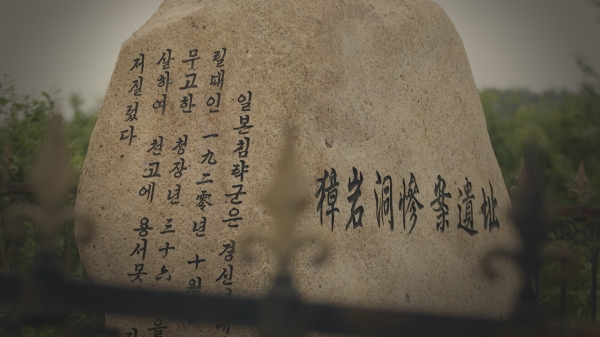 일본침략군은 경신
릴때인 一九二零년 十월
무고한 청장년 三十六
살하여 천고에 용서못
저질렀다
獐岩洞惨案遺址